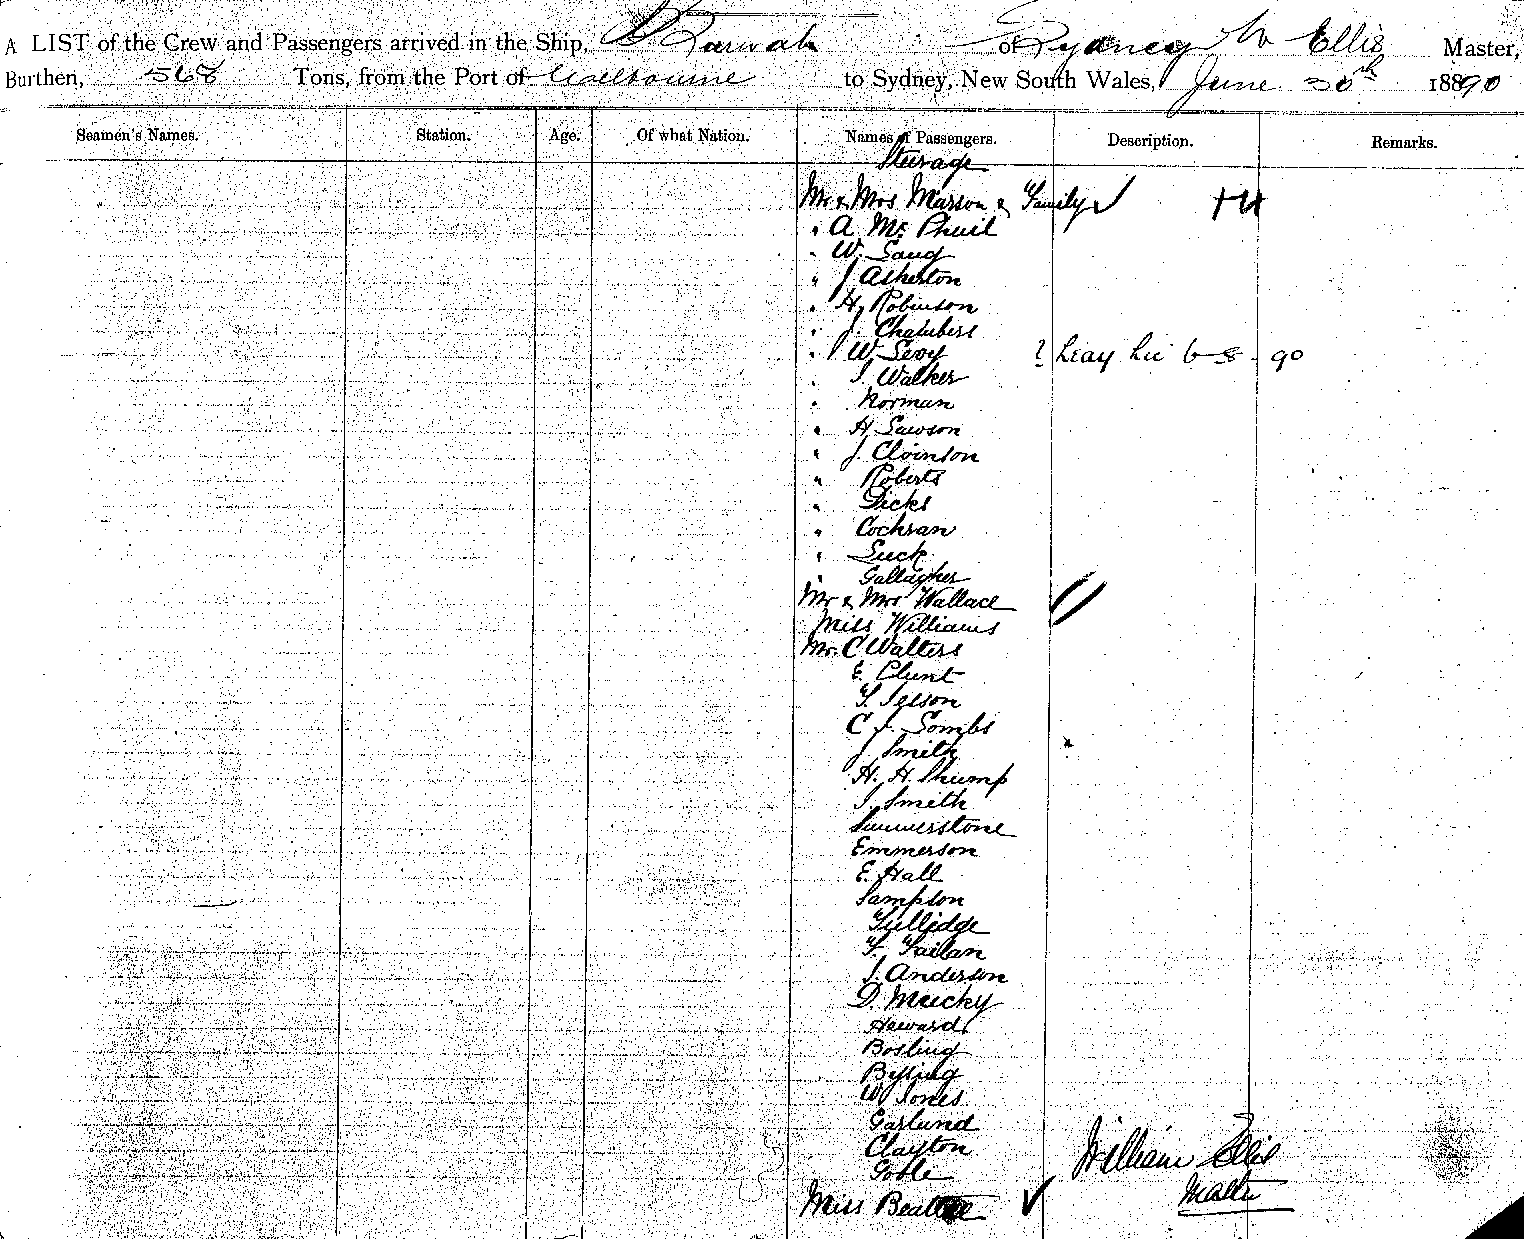 A LIST of the Crew and Passengers arrived in the Ship, Barwah of Sydney W Ellis Master,
Burthen, 568 Tons, from the Port of Melbourne to Sydney, New South Wales, June 30th 1890
Seamen's Names. Station. Age. Of what Nation. Names of Passengers. Description. Remarks.
Steerage
Mr & Mrs Marson & Family
" A Mc Phail
" W.
" J Asherton
" H. Robinson
" J. Chambers
" W. Levy 90
" Walker
" Norman
" H. Lawson
" J. Cloinson
" Roberts
" Dicks
" Cochran
" Luck
" Gallagher
Mr & Mrs Wallace
Miss Williams
Mr. C Walters
E. Clunt
C J. Sombs
J Smith
H. H. Thump
J. Smith
Summerstone
Emmerson
E. Hall
Sampson
Gulledge
F. Failan
J. Anderson
D. Maicky
Howard
Bosling
W Jones
Garland
Clayton
Goble
Miss Beattie
William Ellis
Master